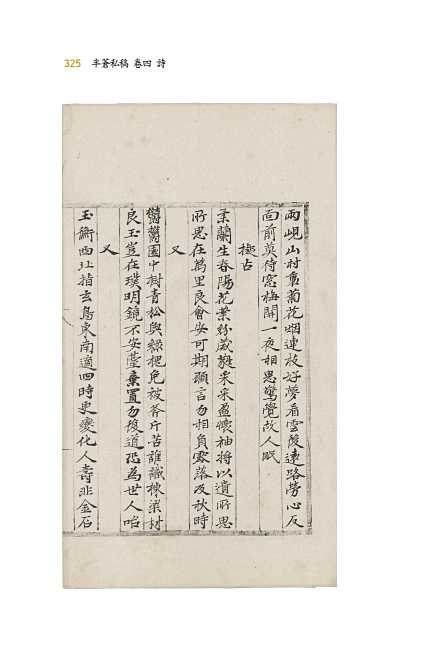 325 半蒼私稿 卷四 詩
雨峴山村舊菊花烟連枝好夢看雲遠路勞心反
面前莫待窓梅開一夜相思驚覺故人眠
擬古
蘭生春陽花葉紛葳蕤采采盈懷袖將以遺所思
所思在萬里良會安可期願言勿相負零落及秋時
又
欝欝園中樹青松與緑杞免被斧斤苦誰識棟梁材
良玉豈在璞明鏡不安臺棄置勿復道恐為世人咍
又
玉衡西北指玄鳥東南適四時更變化人壽非金石